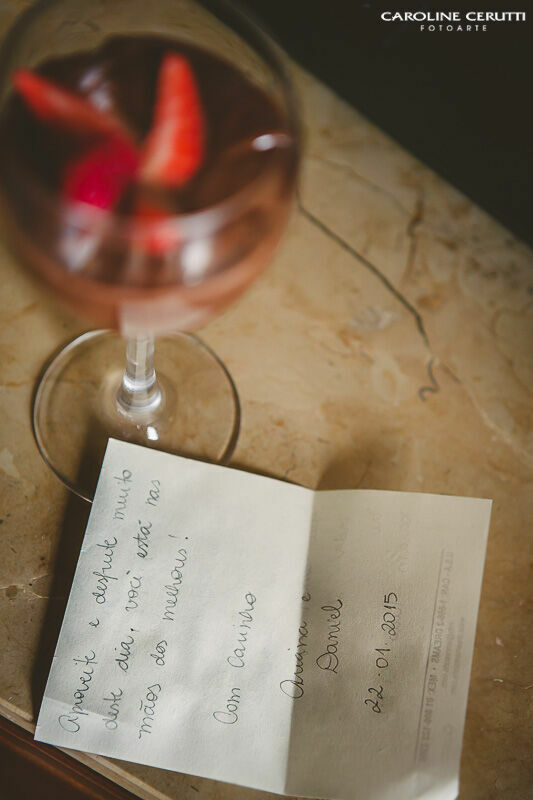 CAROLINE CERUTTI
FOTOARTE
Aproveite e desfrute muito
deste dia, você está nas
mãos dos melhores!
Com Carinho
e
Daniel
22-01-2015